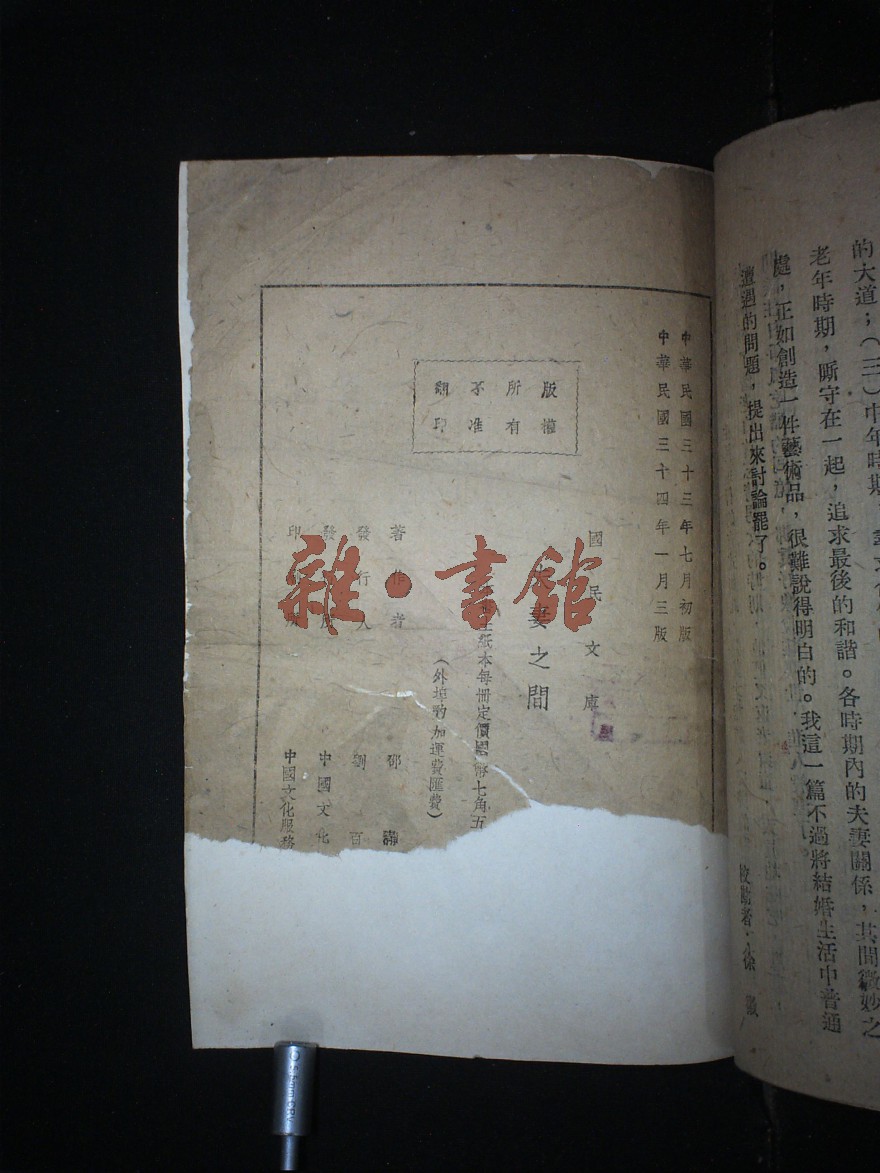 的大道；（三）中年時期，
老年時期，厮守在一起，追求最後的和諧。各時期內的夫妻關係，其間微妙之
處，正如創造一件藝術品，很難說得明白的。我這一篇不過將結婚生活中普通
遭遇的問題，提出來討論罷了。
校勘者：徐
中華民國三十三年七月初版
中華民國三十四年一月三版
版權
所有
不准
翻印
國民文庫
夫妻之間
紙本每冊定價國幣七角五
（外埠酌加運費匯費）
著作者 鄧
發行人 劉百
發 中國文化
印 中國文化服務
雜·書館
0.5mm